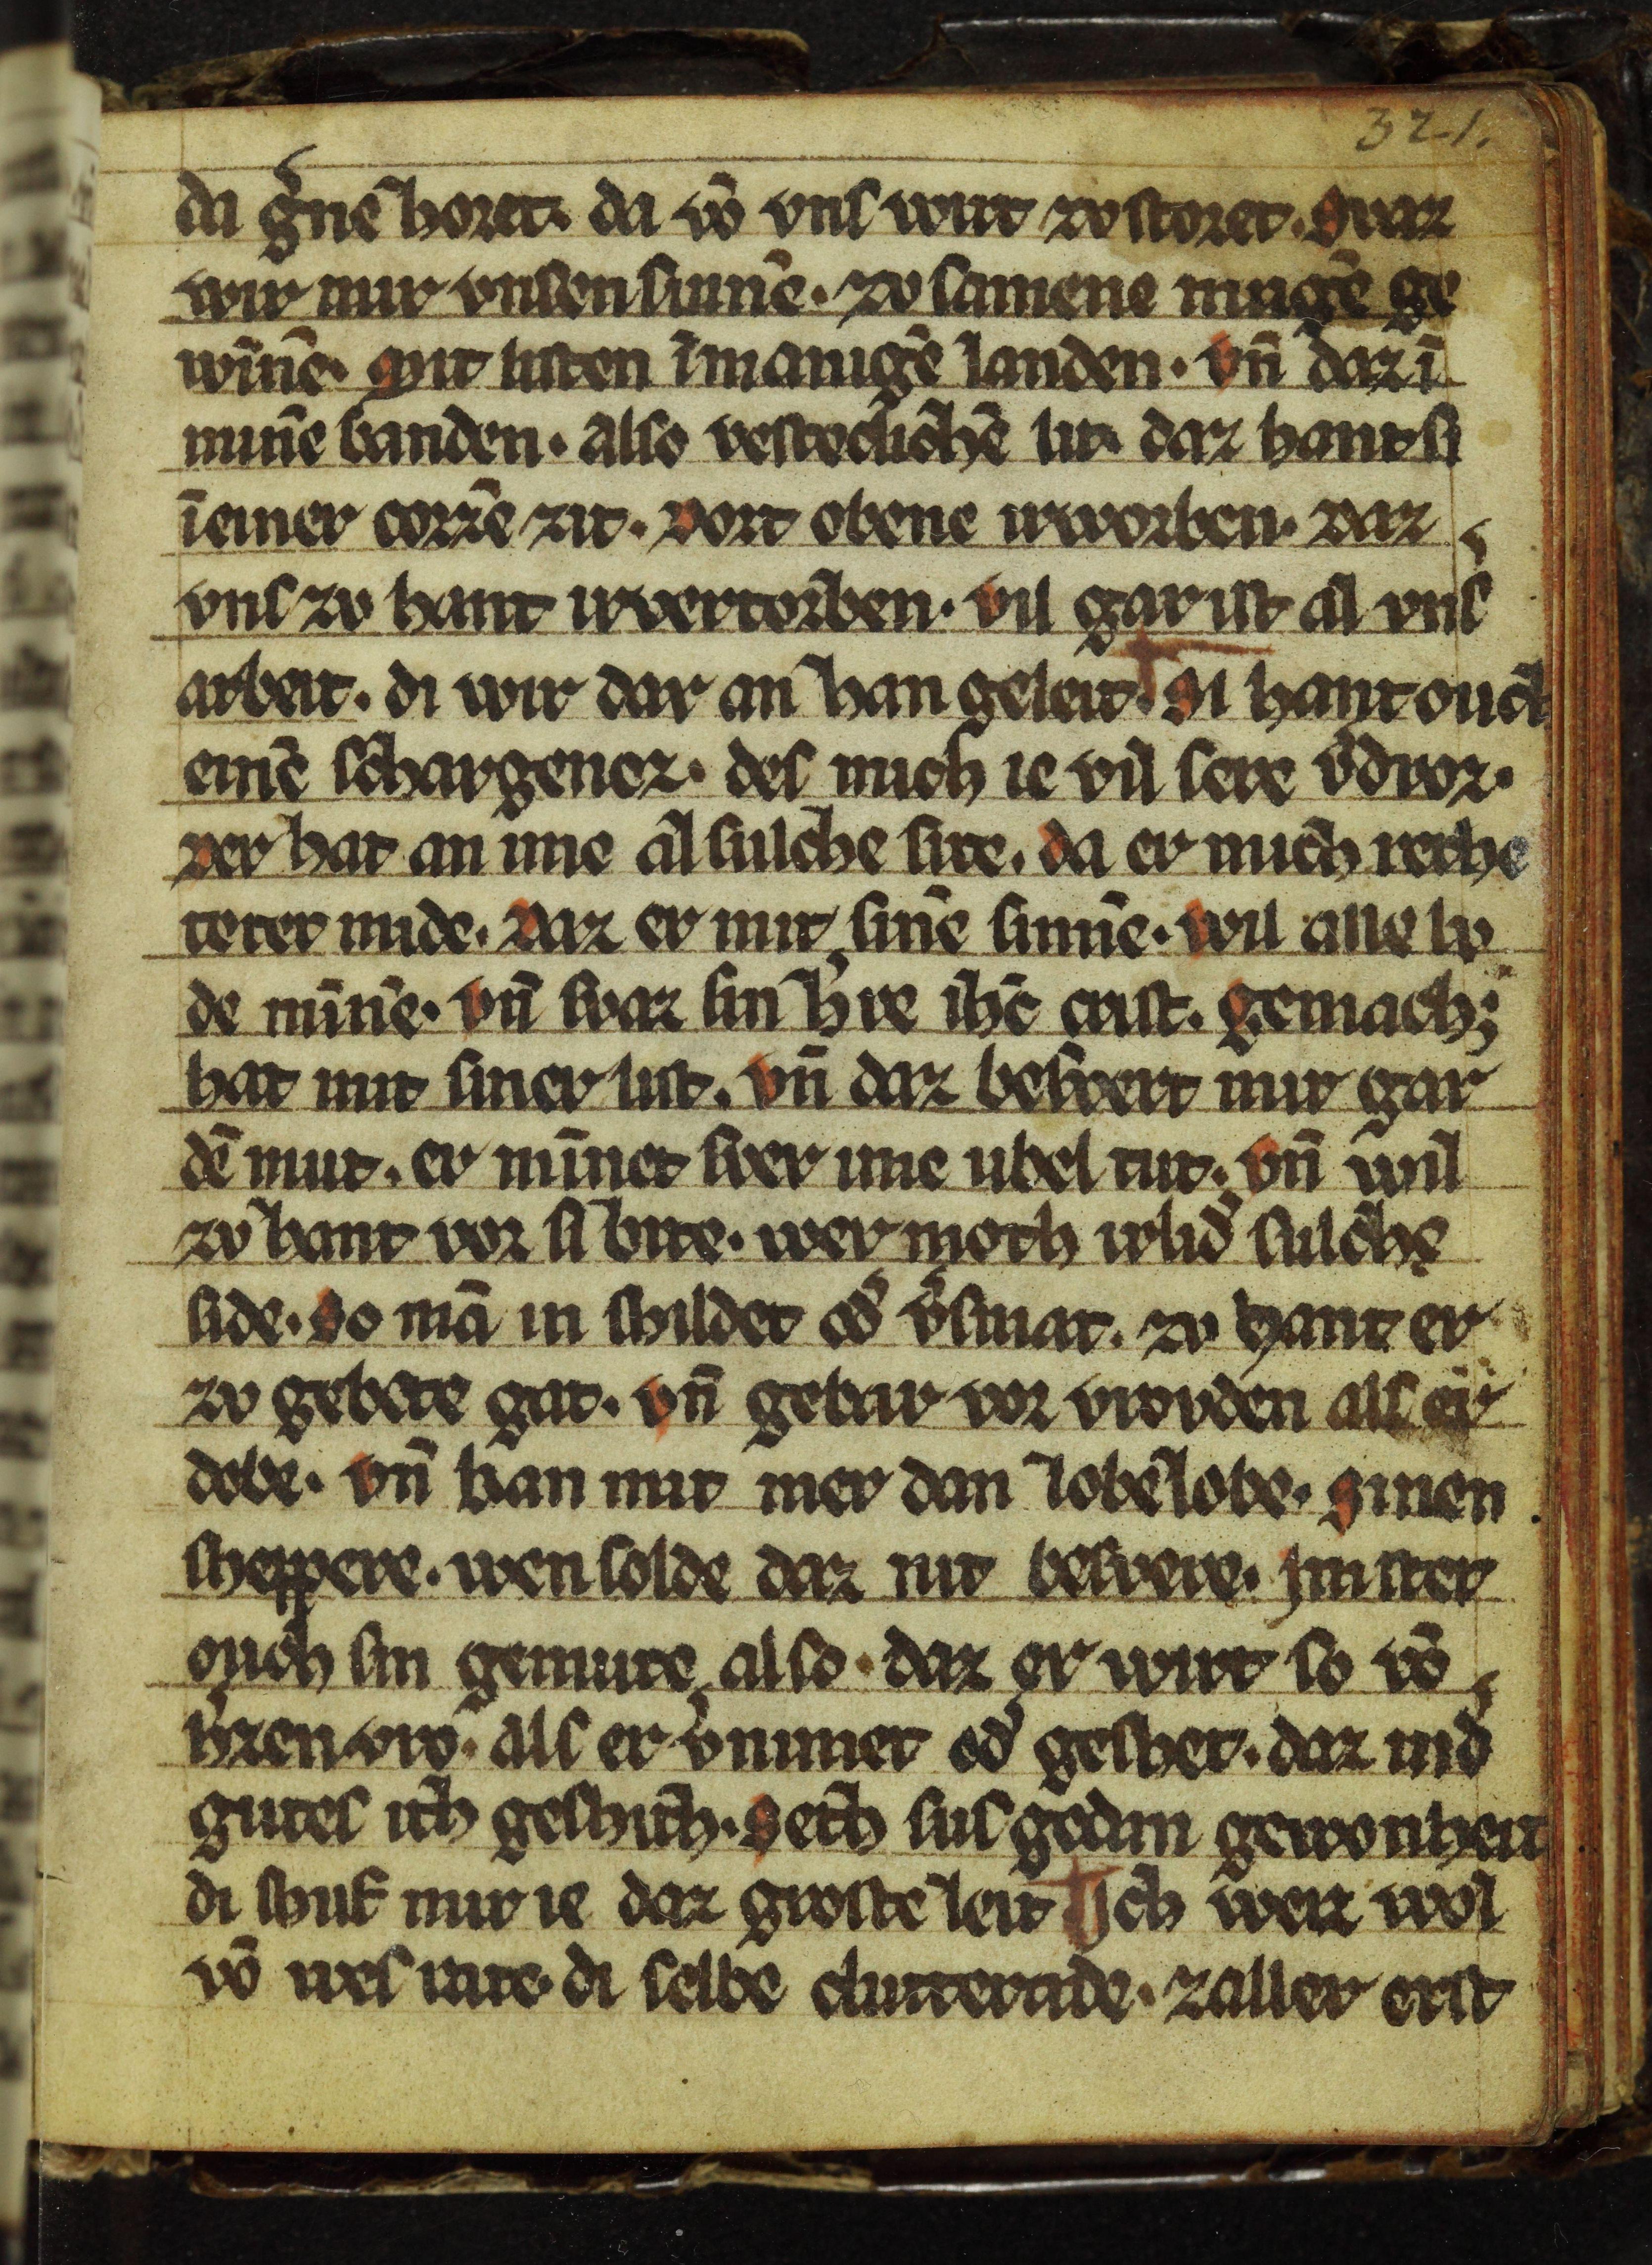 321.
da g͛nē horet. da vō vns wirt zvstoret. Swaz
wir mir vnsen sinnē. zv samene mugē ge
winnē. Mit listen ī manigē landen. Vn̄ daz ī
minē banden. Also vesteclichē lit. daz hant si
ī einer cortzē zit. Vort obene irworben. Daz
vns zv hant irvertorben. Vil gar ist al vns͛
arbeit. di wir dar an han geleit. Si hant ouch
einē schargenoz. des mich ie vil sere v͛droz.
Der hat an ime alsulche site. Da er mich rethe
teter mide. Daz er mit sinē sinnē. Wil alle lv
de minnē. Vn̄ swaz sin h͛re ih̄c crist. Gemach;
hat mit siner list. Vn̄ daz beswert mir gar
dē mut. er minnet swer ime ubel tut. Vn̄ wil
zv hant vor si bite. wer moth irlid͛ sulche
side. So mā in shildet od͛ v͛smat. zv hant er
zv gebete gat. Vn̄ gebar vor vrovden als er
dobe. Vn̄ han nit mer dan lobelobe. Sinen
sheppere. wen solde daz nit beswere. Im stet
ouch sin gemute also. daz er wirt so vō
h͛zen vro. als er v͛nimet od͛ gesihet. daz iēd͛
gutes ich geshich. Seth sus gedan gewonheit
di shuf mir ie daz groste leit Ich weiz wol
vō wes rate. di selbe clutterade. zaller erst